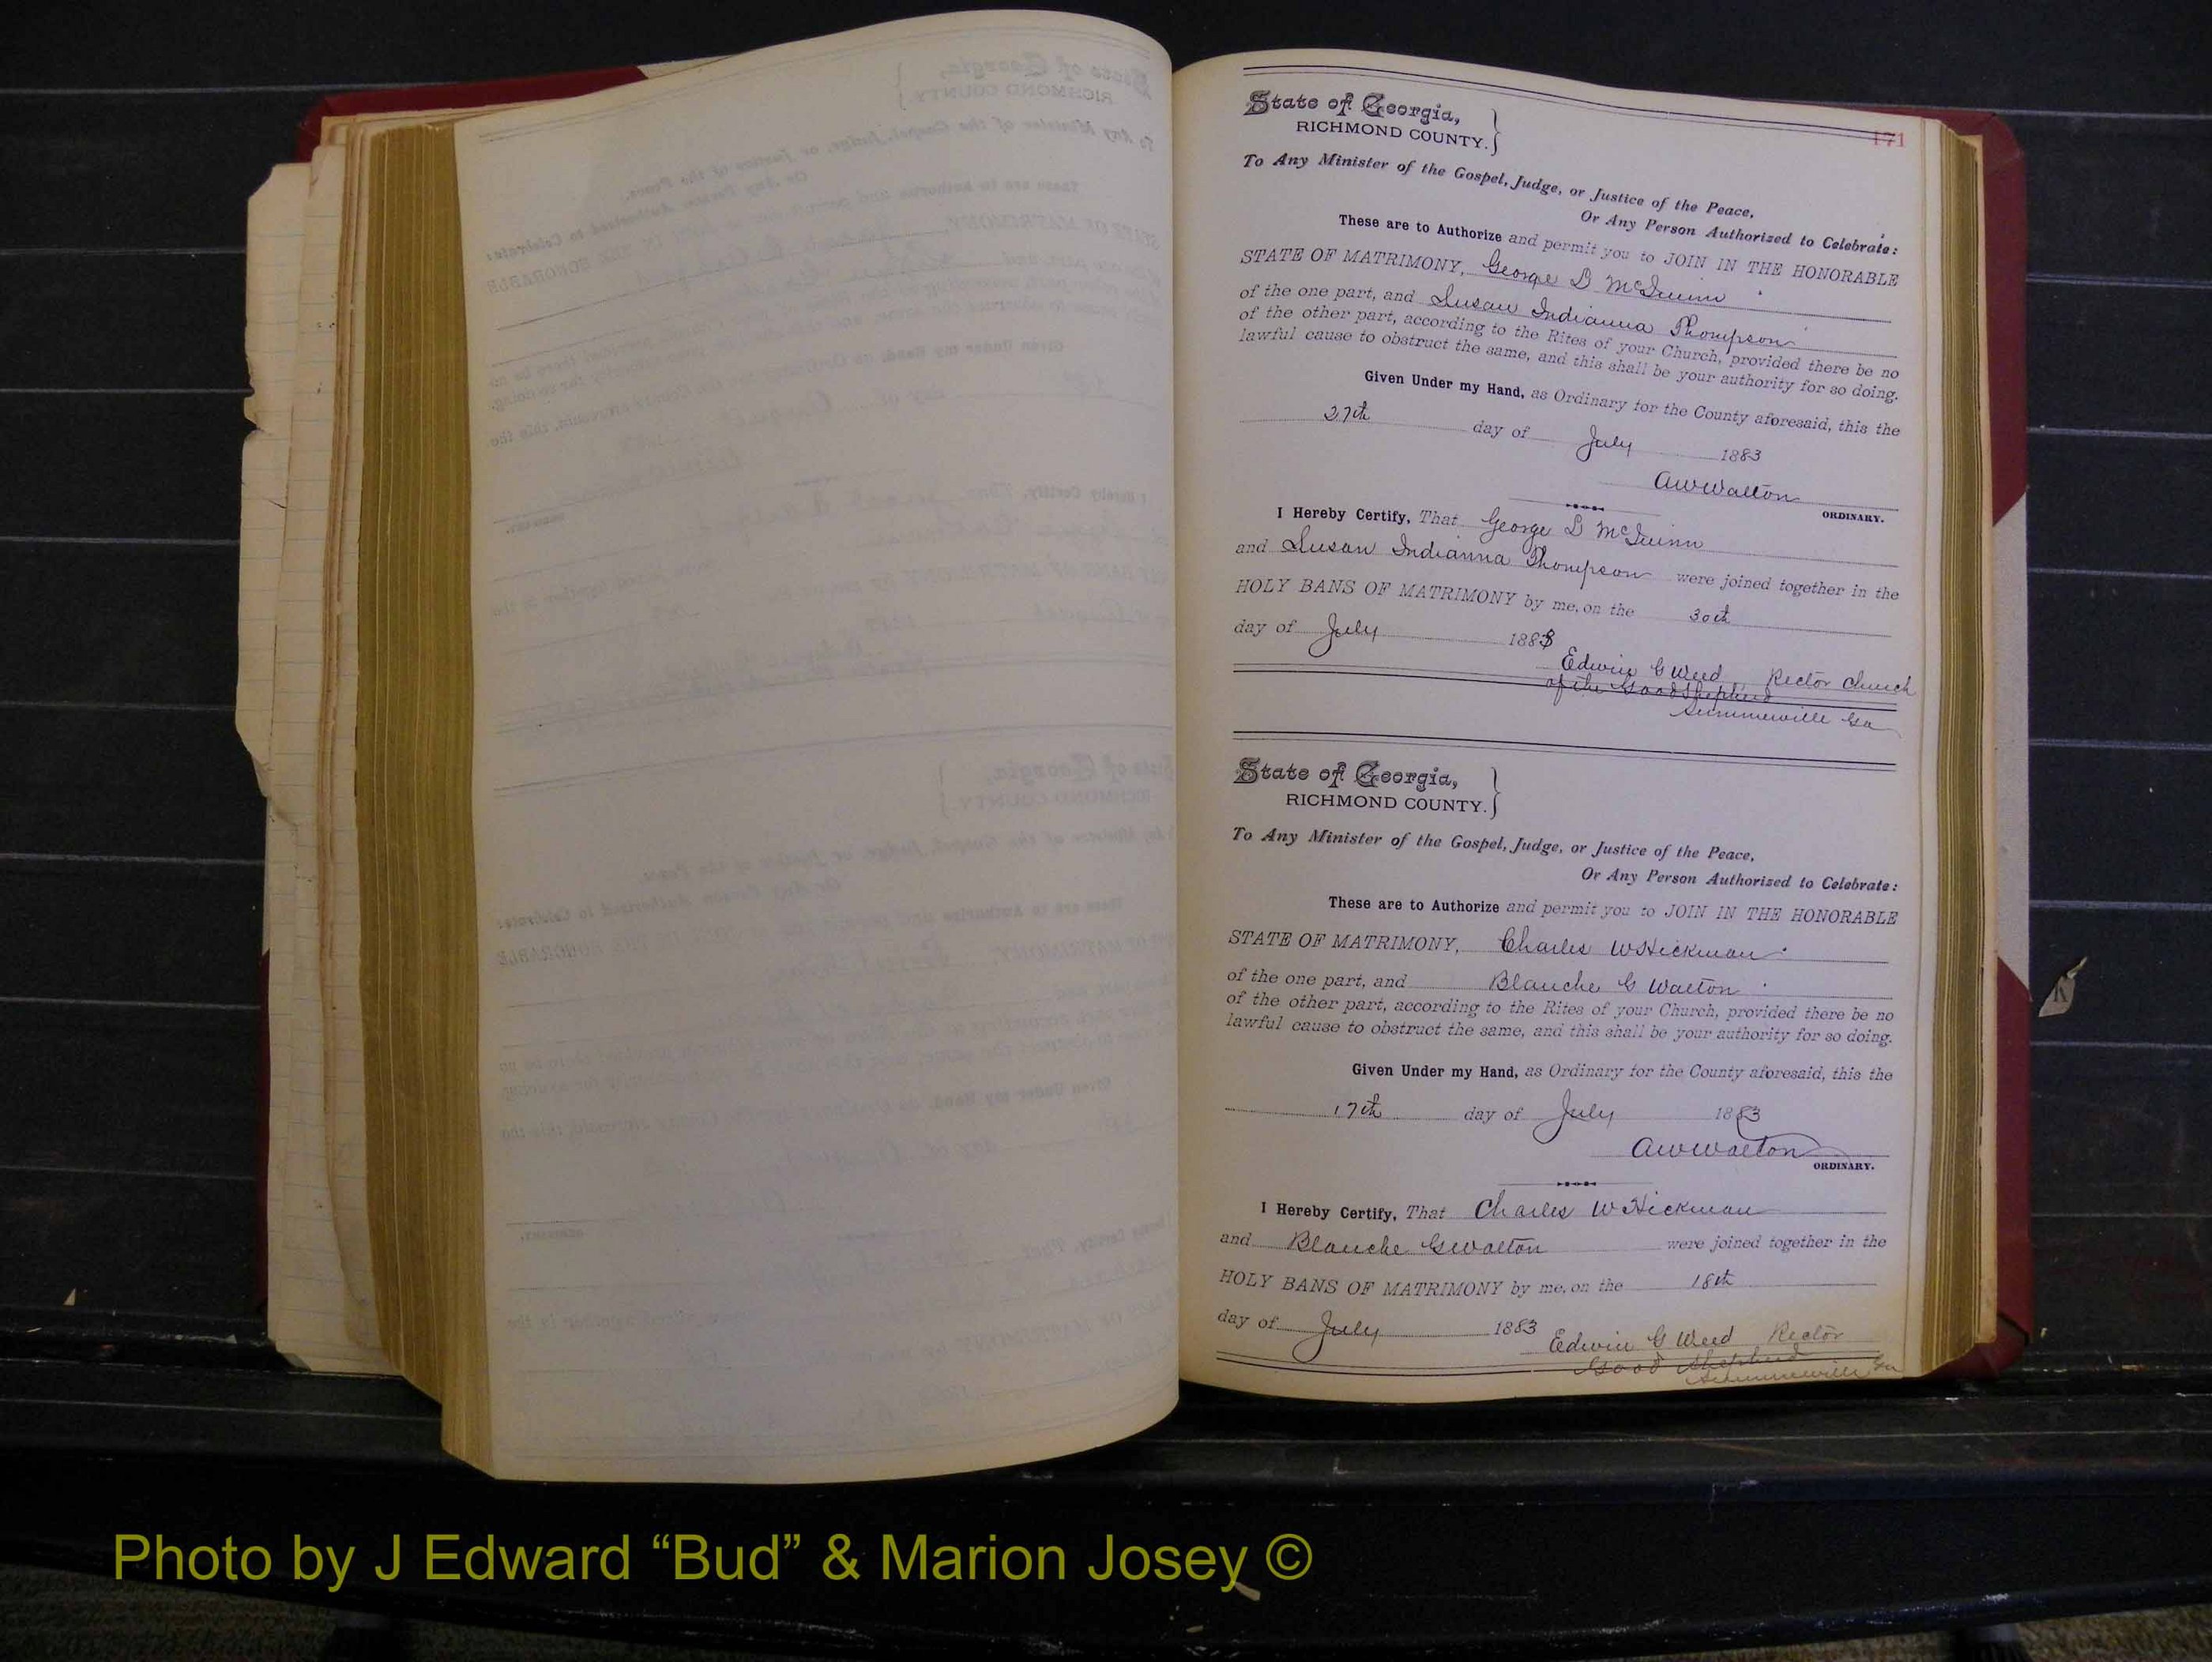 171
State of Georgia,
RICHMOND COUNTY.
To Any Minister of the Gospel, Judge, or Justice of the Peace,
Or Any Person Authorized to Celebrate:
These are to Authorize and permit you to JOIN IN THE HONORABLE
STATE OF MATRIMONY, George D McGuinn
of the one part, and Susan Indianna Thompson
of the other part, according to the Rites of your Church, provided there be no
lawful cause to obstruct the same, and this shall be your authority for so doing.
Given Under my Hand, as Ordinary for the County aforesaid, this the
27th day of July 1883
AWWalton
ORDINARY.
I Hereby Certify, That George D McGuinn
and Susan Indianna Thompson were joined together in the
HOLY BANS OF MATRIMONY by me, on the 30th
day of July 1883
Edwin G Weed Rector Church
of the Good Shepherd
Summerville Ga
State of Georgia,
RICHMOND COUNTY.
To Any Minister of the Gospel, Judge, or Justice of the Peace,
Or Any Person Authorized to Celebrate:
These are to Authorize and permit you to JOIN IN THE HONORABLE
STATE OF MATRIMONY, Charles W Hickman
of the one part, and Blanche G Walton
of the other part, according to the Rites of your Church, provided there be no
lawful cause to obstruct the same, and this shall be your authority for so doing.
Given Under my Hand, as Ordinary for the County aforesaid, this the
17th day of July 1883
AWWalton
ORDINARY.
I Hereby Certify, That Charles W Hickman
and Blanche G Walton were joined together in the
HOLY BANS OF MATRIMONY by me, on the 18th
day of July 1883
Edwin G Weed Rector
Good Shepherd
Summerville Ga
Photo by J Edward “Bud” & Marion Josey ©